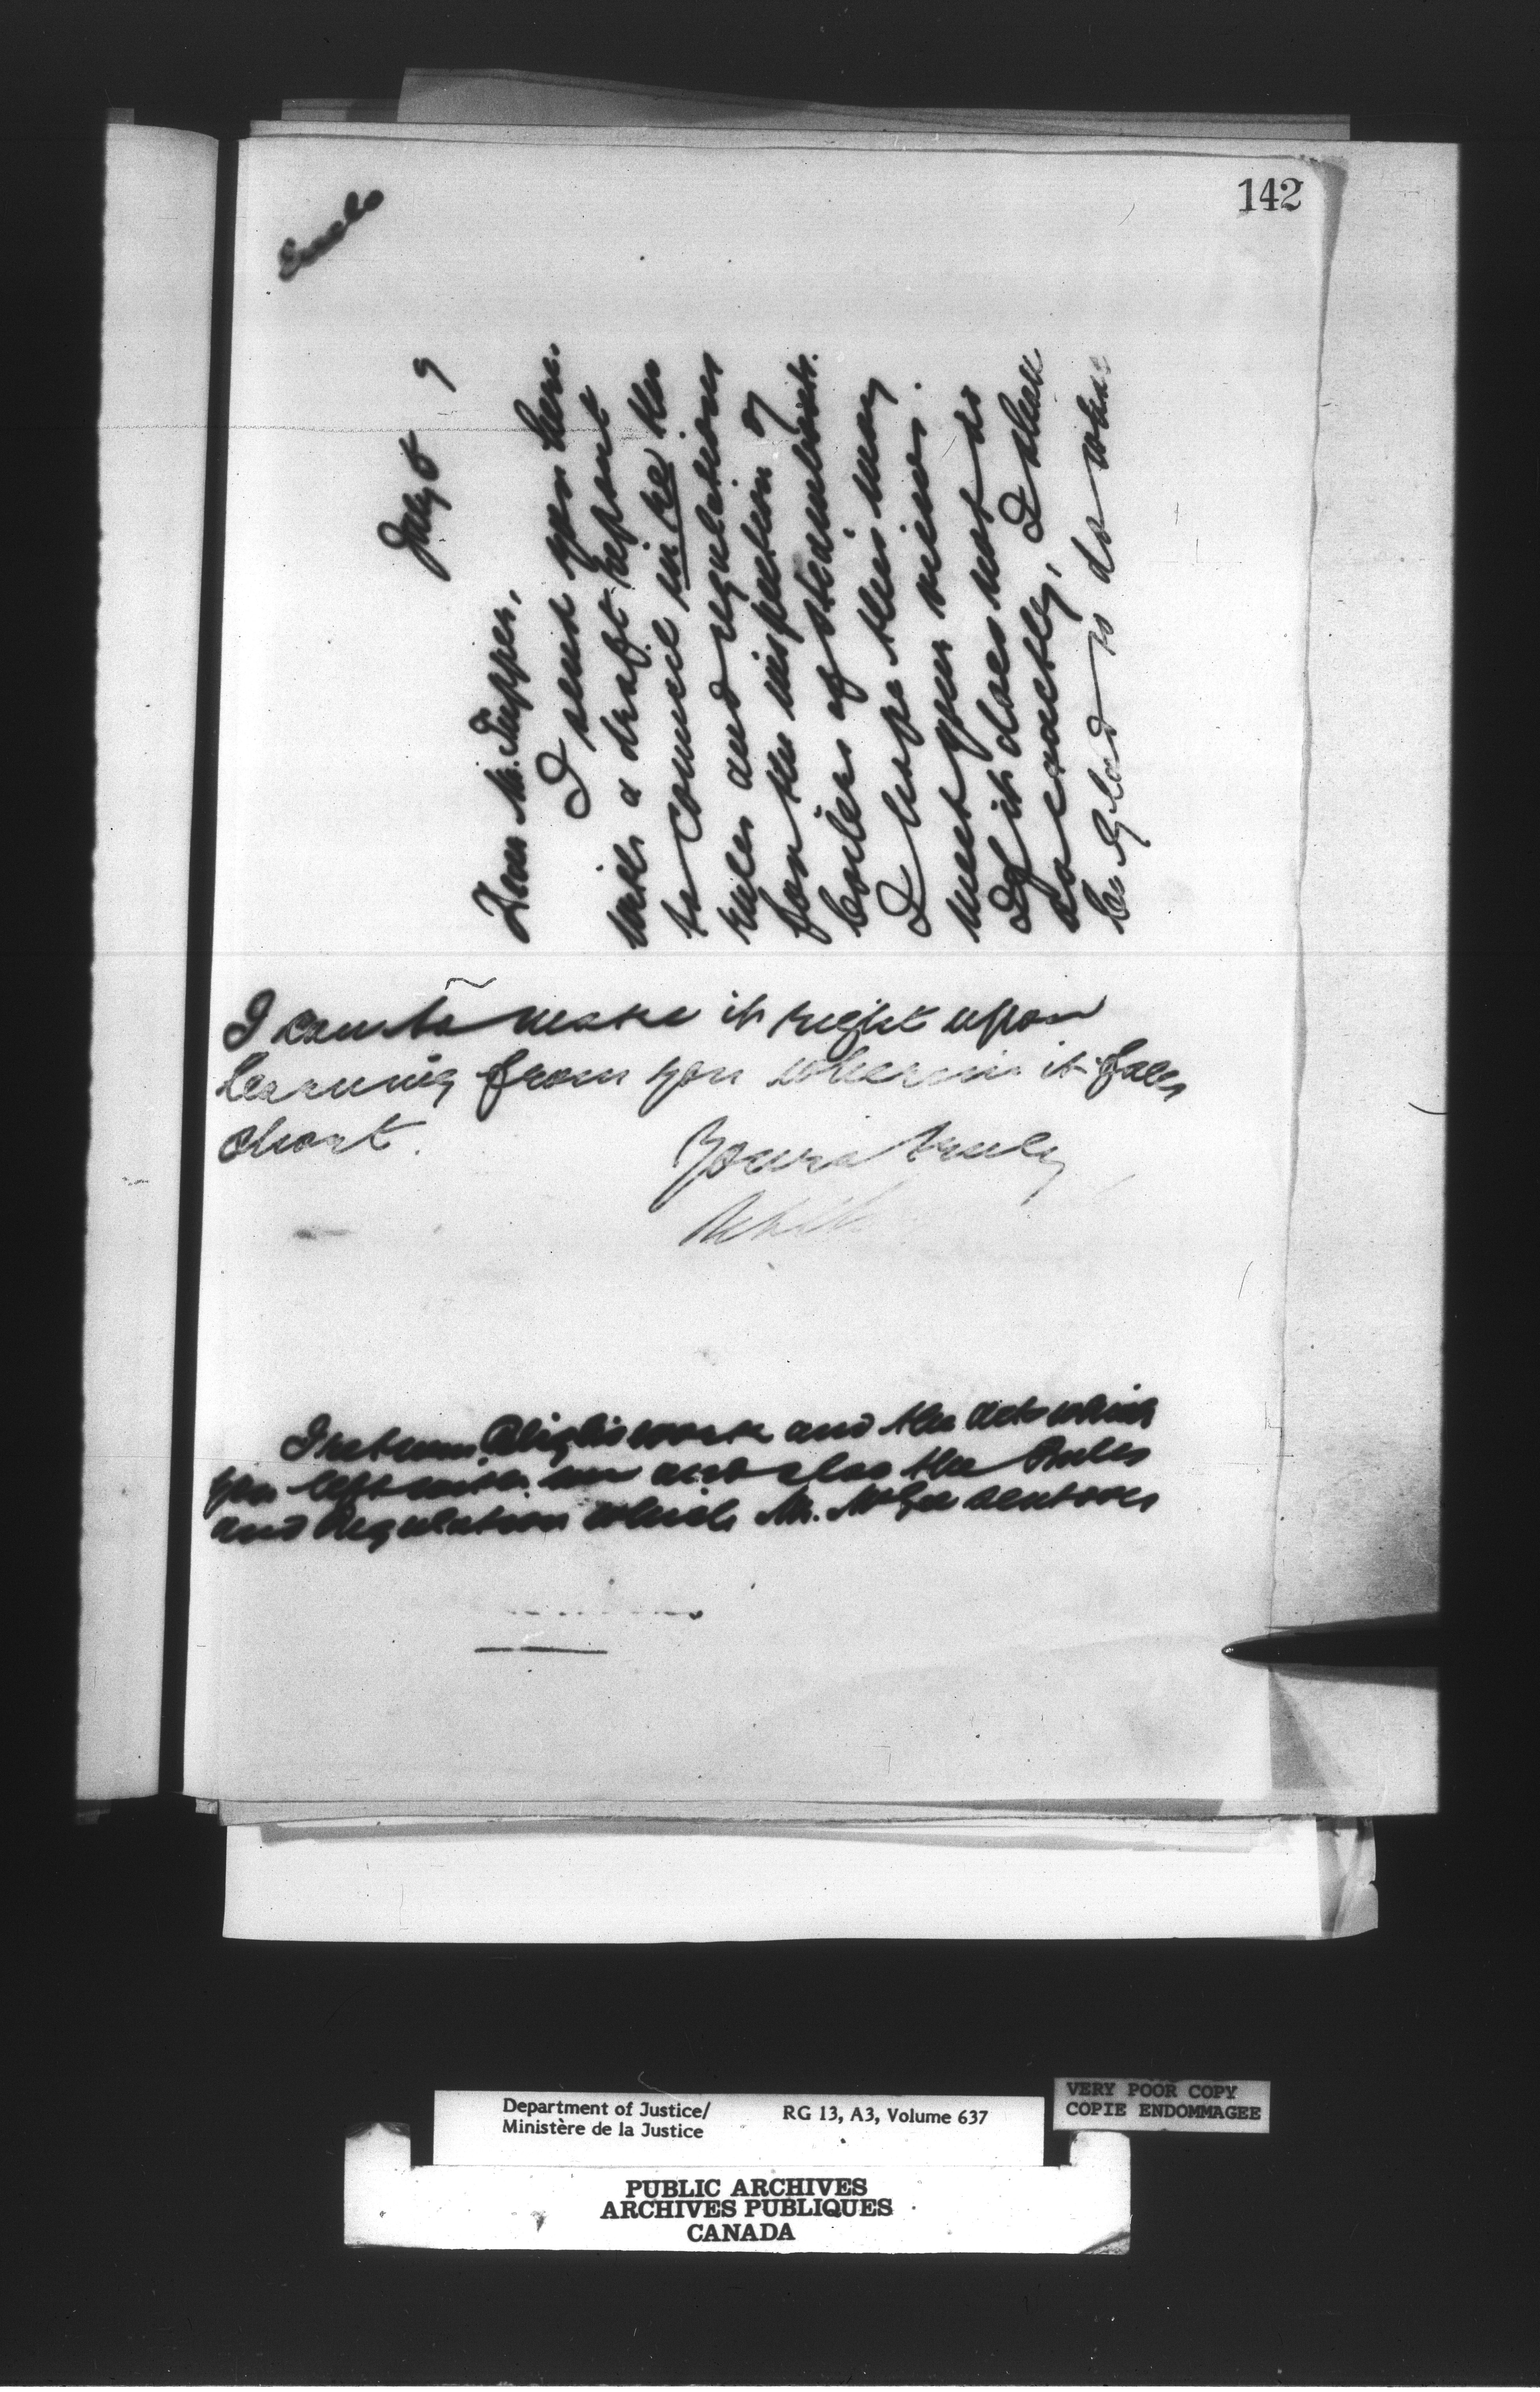 142
Enclo
July 5 9
Dear Mr. Tupper,
I send you here
with a draft report
to Council in re the
rules and regulations
for the inspection of
boilers of steamboats.
I hope this may
meet your views.
If it does not do
so exactly, I shall
be glad to do what
I can to make it right upon
learning from you wherein it falls
short.
Yours truly
I return work and the acts which
you left with me and also the Rules
and Regulation which Mr. McGee sent over
Department of Justice/
Ministère de la Justice
RG 13, A3, Volume 637
VERY POOR COPY
COPIE ENDOMMAGEE
PUBLIC ARCHIVES
ARCHIVES PUBLIQUES
CANADA